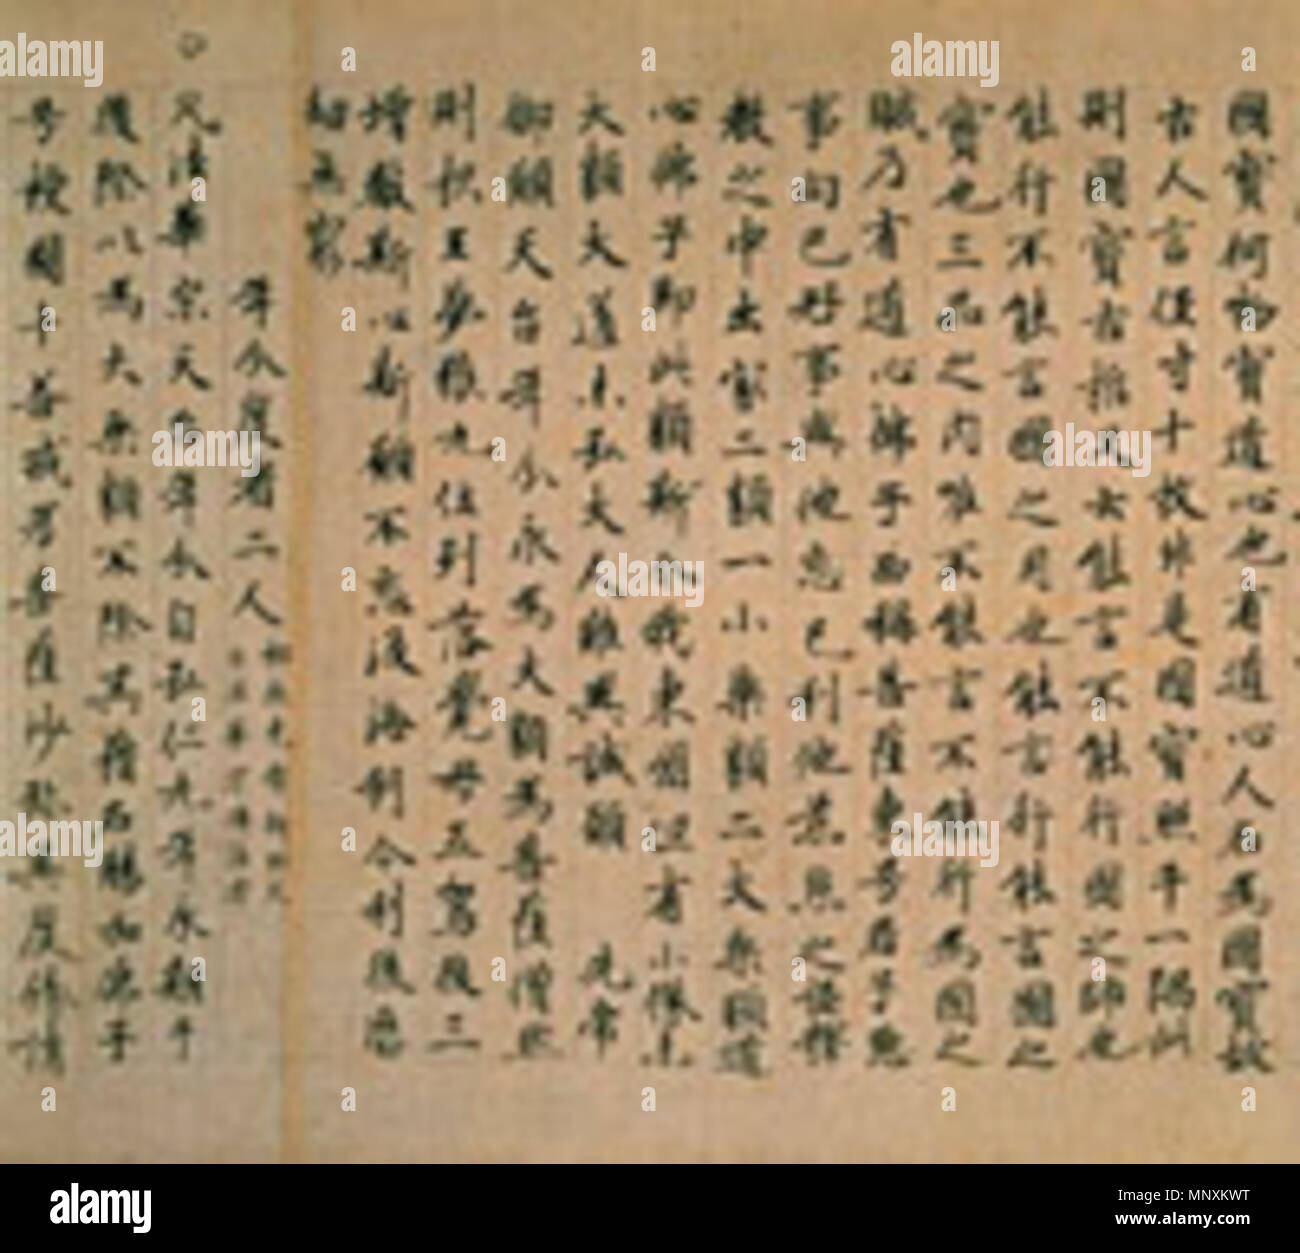 國寶何物寶道心也有道心人名爲國寶故
古人言徑寸十枚非是國寶照千一隅此
則國寶古哲又云能言不能行國之師也
能行不能言國之用也能言行能言國之
寶也三品之内唯不能言不能行爲國之
賊乃有道心佛子西稱菩薩東号君子惡
事向己好事與他忘己利他慈悲之極釋
教之中出家二類一小乘類二大乘類道
心佛子即此類斯今我東州但有小像未
大類大道未弘大人難興誠願 先帝
御願天台年分永爲大類爲菩薩僧然
則枳王夢猴九位列落覺母五駕後三
增數斯心斯願不忘汲海利今利後歷
劫無窮
年分度者二人
凡法華宗天台年分自弘仁九年永期于
後際以爲大乘類不除其籍名賜加佛子
号授圓十善戒爲菩薩沙弥其度縁請
alamy
Image ID: MNXKWT
www.alamy.com